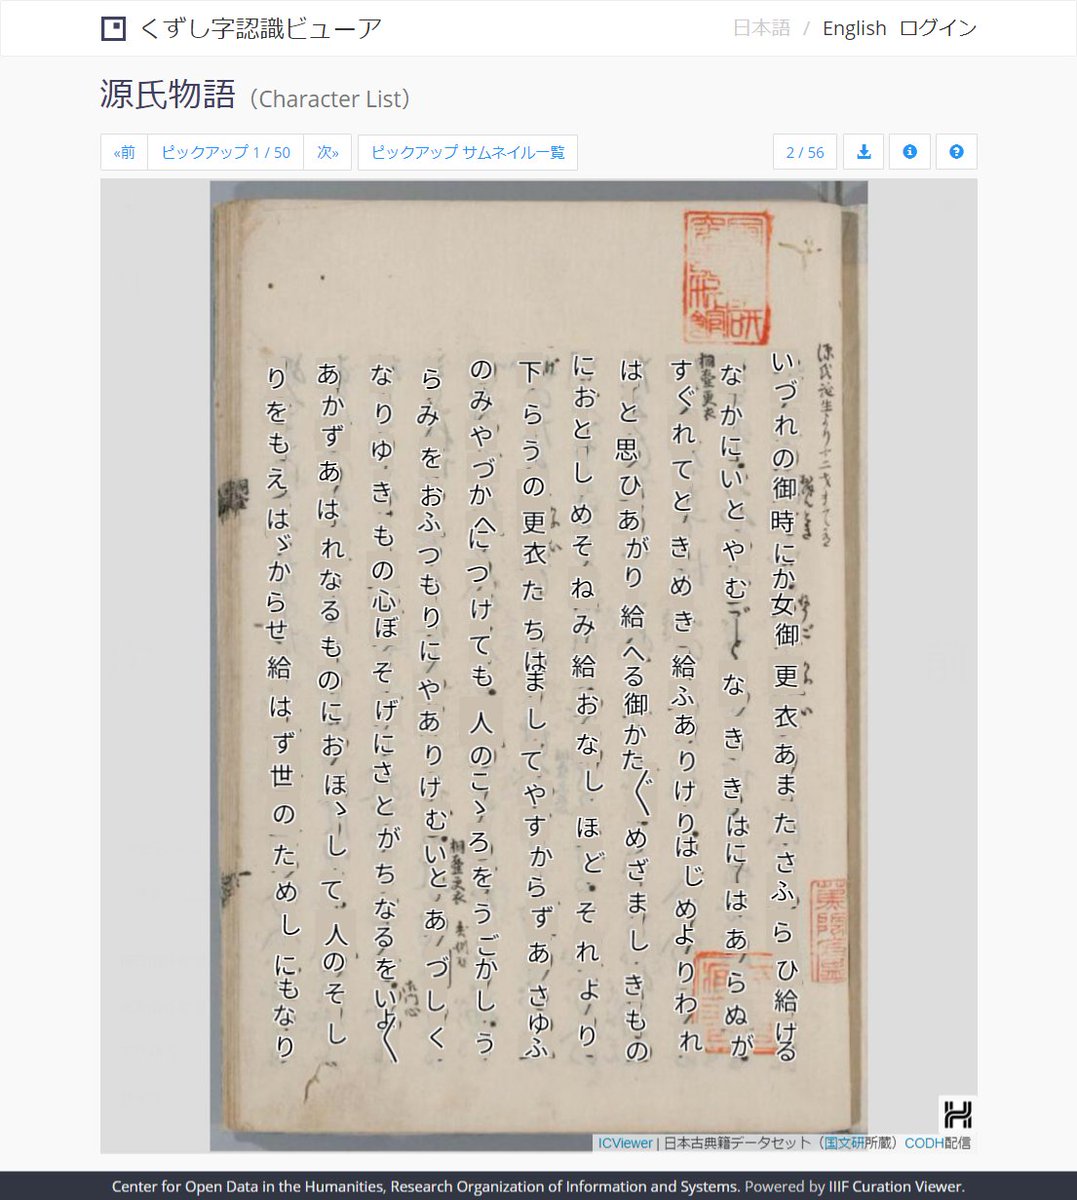 くずし字認識ビューア
日本語 / English ログイン
源氏物語 (Character List)
«前 ピックアップ 1 / 50 次» ピックアップ サムネイル一覧 2 / 56
いづれの御時にか女御更衣あまたさふらひ給ける
なかにいとやむごとなききはにはあらぬが
すぐれてときめき給ふありけりはじめよりわれ
はと思ひあがり給へる御かた〴〵めざましきもの
におとしめそねみ給おなしほどそれより
下らうの更衣たちはましてやすからずあさゆふ
のみやづかへにつけても人のこゝろをうごかしう
らみをおふつもりにやありけむいとあづしく
なりゆきもの心ぼそげにさとがちなるをいよ〳〵
あかずあはれなるものにおほゝして人のそし
りをもえはゞからせ給はず世のためしにもなり
桐壺更衣
桐壺更衣
ICViewer | 日本古典籍データセット（国文研所蔵）CODH配信
Center for Open Data in the Humanities, Research Organization of Information and Systems. Powered by IIIF Curation Viewer.